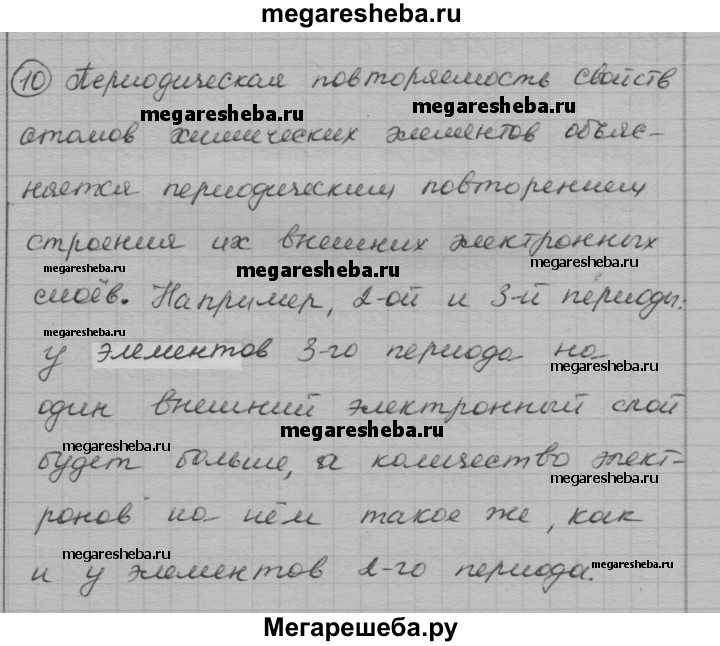 megaresheba.ru
10 Периодическая повторяемость свойств
megaresheba.ru megaresheba.ru
атомов химических элементов объяс-
няется периодическим повторением
строения их внешних электронных
megaresheba.ru megaresheba.ru megaresheba.ru
слоёв. Например, 2-ой и 3-й периоды:
у элементов 3-го периода на
megaresheba.ru
один внешний электронный слой
megaresheba.ru megaresheba.ru
будет больше, а количество элект-
megaresheba.ru
ронов на нём такое же, как
megaresheba.ru megaresheba.ru
и у элементов 2-го периода.
Мегарешеба.ру